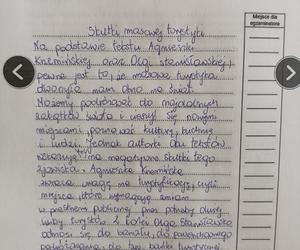 Skutki masowej turystyki
Na podstawie tekstu Agnieszki
Krzemińskiej oraz Olgi Stanisławskiej,
pewne jest to, że masowa turystyka
otworzyła nam okno na świat.
Możemy podróżować do najdalszych
zakątków świata i cieszyć się nowymi
miejscami, poznawać kulturę, kuchnię
i ludzi. Jednak autorki obu tekstów
wskazują na negatywne skutki tego
zjawiska. Agnieszka Krzemińska
zwraca uwagę na turystyfikację, czyli
miejsca, które wymagają zmian
w przestrzeni publicznej przez potrzeby dużej
liczby turystów. Z kolei Olga Stanisławska
odnosi się do banału, do powierzchownego
do tzw. bańki turystycznej
Miejsce dla
egzaminatora